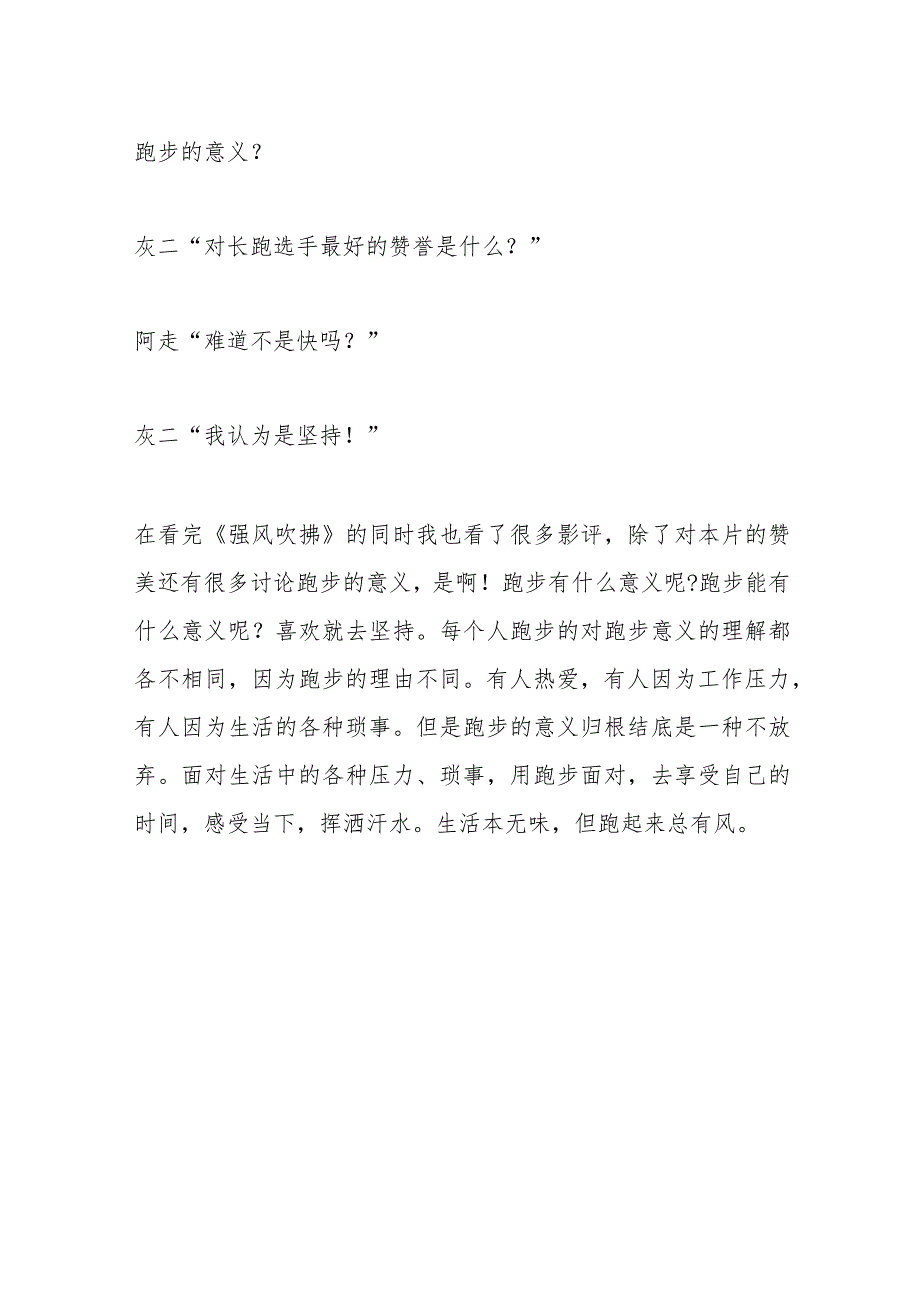 跑步的意义？
灰二“对长跑选手最好的赞誉是什么？”
阿走“难道不是快吗？”
灰二“我认为是坚持！”
在看完《强风吹拂》的同时我也看了很多影评，除了对本片的赞
美还有很多讨论跑步的意义，是啊！跑步有什么意义呢?跑步能有
什么意义呢？喜欢就去坚持。每个人跑步的对跑步意义的理解都
各不相同，因为跑步的理由不同。有人热爱，有人因为工作压力，
有人因为生活的各种琐事。但是跑步的意义归根结底是一种不放
弃。面对生活中的各种压力、琐事，用跑步面对，去享受自己的
时间，感受当下，挥洒汗水。生活本无味，但跑起来总有风。